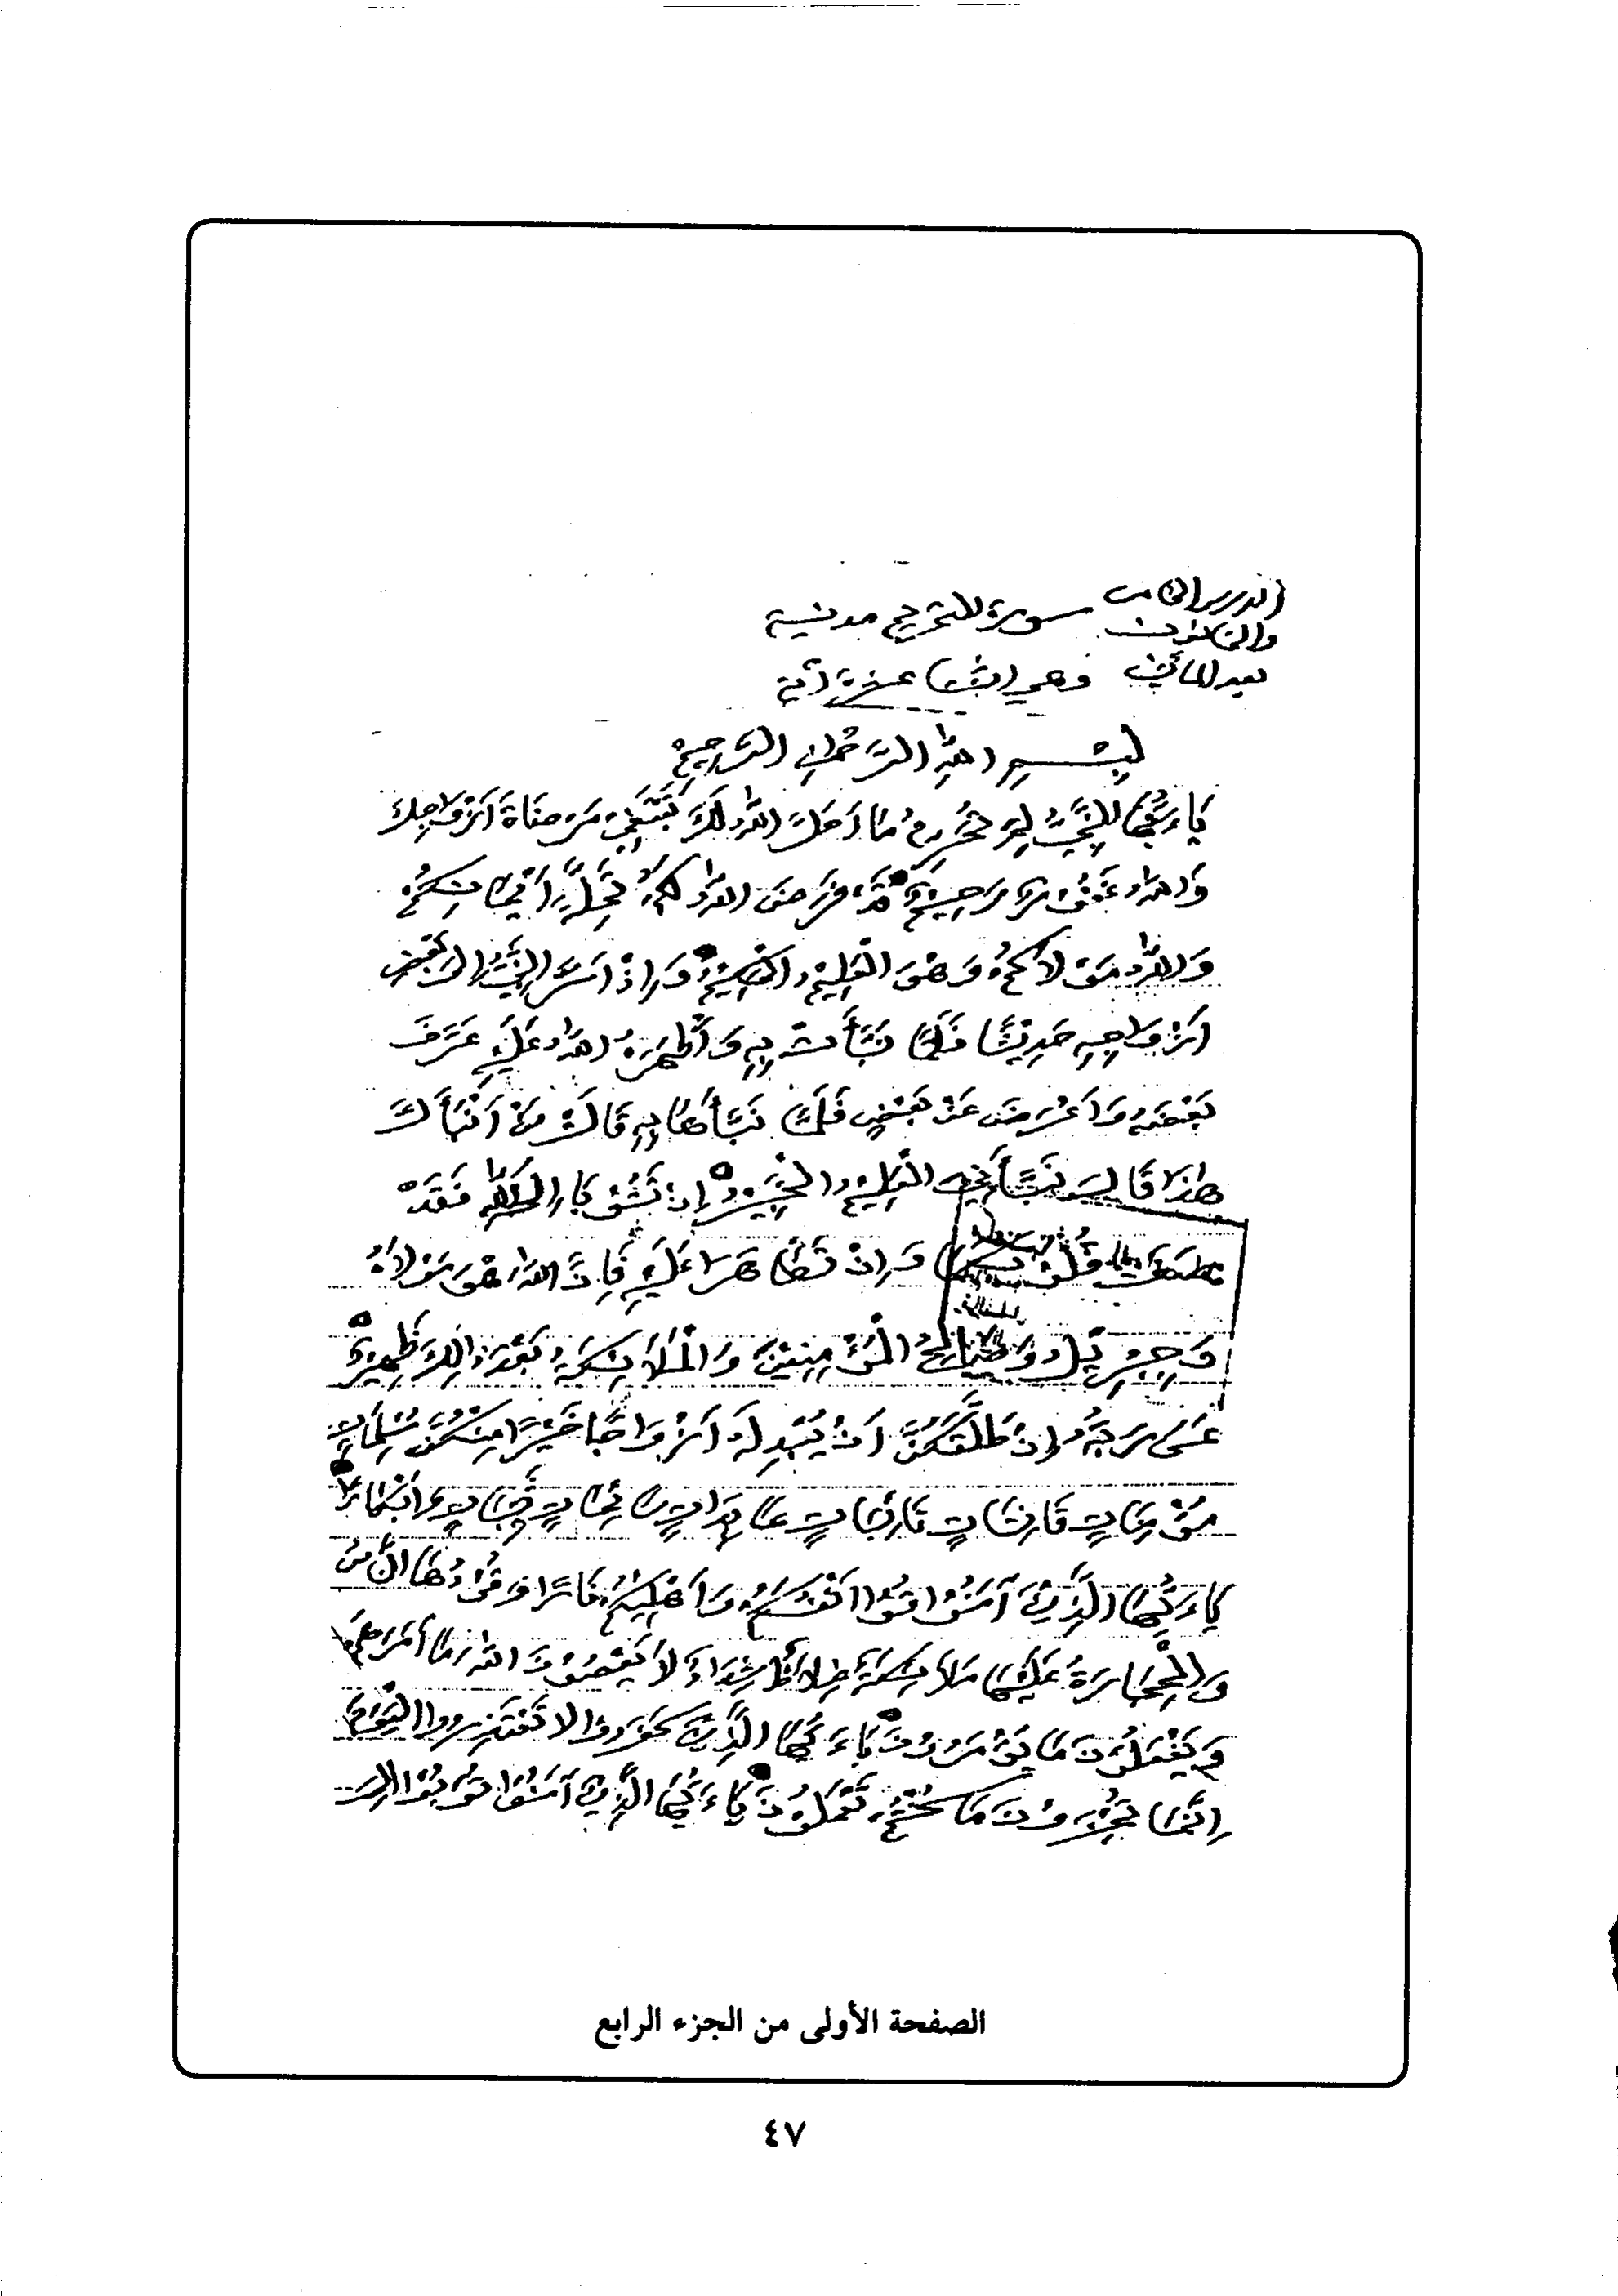 الدرس الثامن
والثلاثون سورة التحريم مدنية
بعد المائتين وهي اثنتا عشرة آية
بِسْمِ اللهِ الرَّحْمٰنِ الرَّحِيمِ
يَاءَيُّهَا النَّبِيُّ لِمَ تُحَرِّمُ مَا أَحَلَّ اللهُ لَكَ تَبْتَغِي مَرْضَاةَ أَزْوَاجِكَ
وَاللهُ غَفُورٌ رَحِيمٌ قَدْ فَرَضَ اللهُ لَكُمْ تَحِلَّةَ أَيْمَانِكُمْ
وَاللهُ مَوْلَاكُمْ وَهُوَ الْعَلِيمُ الْحَكِيمُ وَإِذْ أَسَرَّ النَّبِيُّ إِلَى بَعْضِ
أَزْوَاجِهِ حَدِيثًا فَلَمَّا نَبَّأَتْ بِهِ وَأَظْهَرَهُ اللهُ عَلَيْهِ عَرَّفَ
بَعْضَهُ وَأَعْرَضَ عَنْ بَعْضٍ فَلَمَّا نَبَّأَهَا بِهِ قَالَتْ مَنْ أَنْبَأَكَ
هٰذَا قَالَ نَبَّأَنِيَ الْعَلِيمُ الْخَبِيرُ إِنْ تَتُوبَا إِلَى اللهِ فَقَدْ
صَغَتْ قُلُوبُكُمَا وَإِنْ تَظَاهَرَا عَلَيْهِ فَإِنَّ اللهَ هُوَ مَوْلَاهُ
وَجِبْرِيلُ وَصَالِحُ الْمُؤْمِنِينَ وَالْمَلَائِكَةُ بَعْدَ ذٰلِكَ ظَهِيرٌ
عَسَى رَبُّهُ إِنْ طَلَّقَكُنَّ أَنْ يُبْدِلَهُ أَزْوَاجًا خَيْرًا مِنْكُنَّ مُسْلِمَاتٍ
مُؤْمِنَاتٍ قَانِتَاتٍ تَائِبَاتٍ عَابِدَاتٍ سَائِحَاتٍ ثَيِّبَاتٍ وَأَبْكَارًا
يَاءَيُّهَا الَّذِينَ آمَنُوا قُوا أَنْفُسَكُمْ وَأَهْلِيكُمْ نَارًا وَقُودُهَا النَّاسُ
وَالْحِجَارَةُ عَلَيْهَا مَلَائِكَةٌ غِلَاظٌ شِدَادٌ لَا يَعْصُونَ اللهَ مَا أَمَرَهُمْ
وَيَفْعَلُونَ مَا يُؤْمَرُونَ يَاءَيُّهَا الَّذِينَ كَفَرُوا لَا تَعْتَذِرُوا الْيَوْمَ
إِنَّمَا تُجْزَوْنَ مَا كُنْتُمْ تَعْمَلُونَ يَاءَيُّهَا الَّذِينَ آمَنُوا تُوبُوا إِلَى
الصفحة الأولى من الجزء الرابع
٤٧